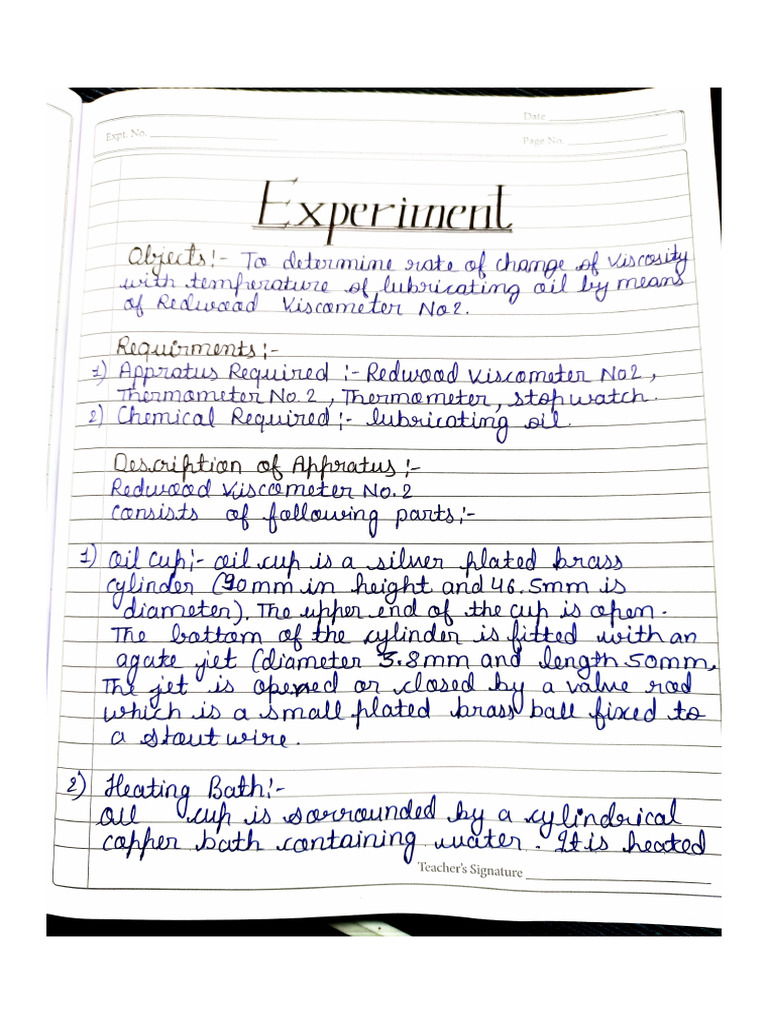 Date
Expt. No.
Page No.
Experiment
Objects:- To determine rate of change of Viscosity
with temperature of lubricating oil by means
of Redwood Viscometer No2.
Requirments:-
1) Appratus Required :- Redwood Viscometer No2,
Thermometer No.2, Thermometer, stopwatch.
2) Chemical Required:- lubricating oil.
Description of Appratus:-
Redwood Viscometer No.2
consists of following parts:-
1) Oil Cup:- oil cup is a silver plated brass
cylinder (90mm in height and 46.5mm is
diameter). The upper end of the cup is open.
The bottom of the cylinder is fitted with an
agate jet (diameter 3.8mm and length 50mm.
The jet is opened or closed by a value rod
which is a small plated brass ball fixed to
a stout wire.
2) Heating Bath:-
Oil cup is sorrounded by a cylindrical
copper bath containing water. It is heated
Teacher's Signature